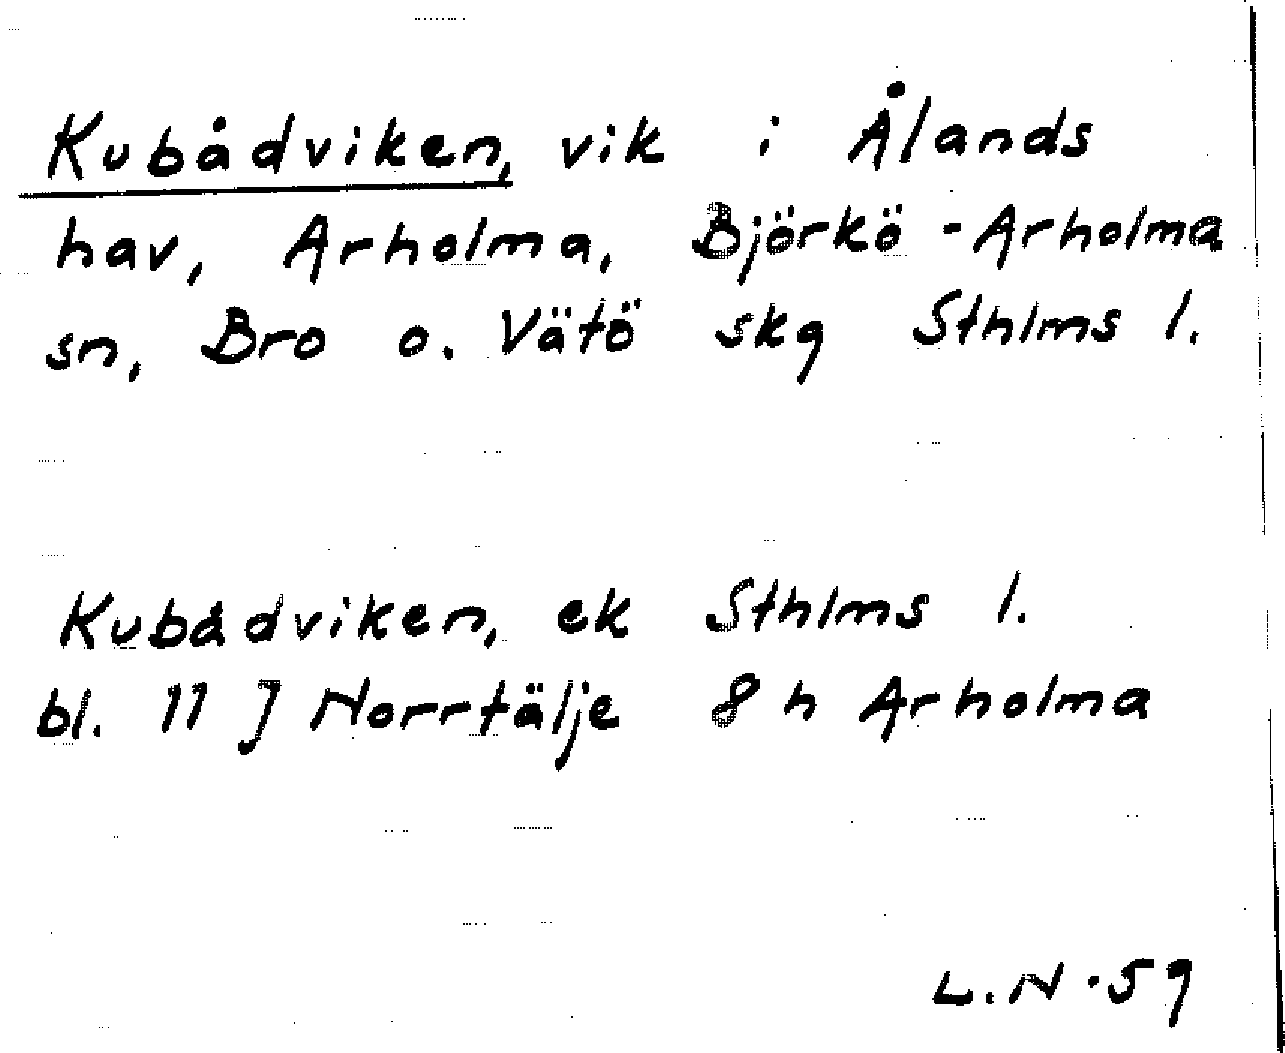 Kubådviken, vik i Ålands
hav, Arholma, Björkö-Arholma
sn, Bro o. Vätö skg Sthlms l.
Kubådviken, ek Sthlms l.
bl. 11 J Norrtälje 8 h Arholma
L.N.59